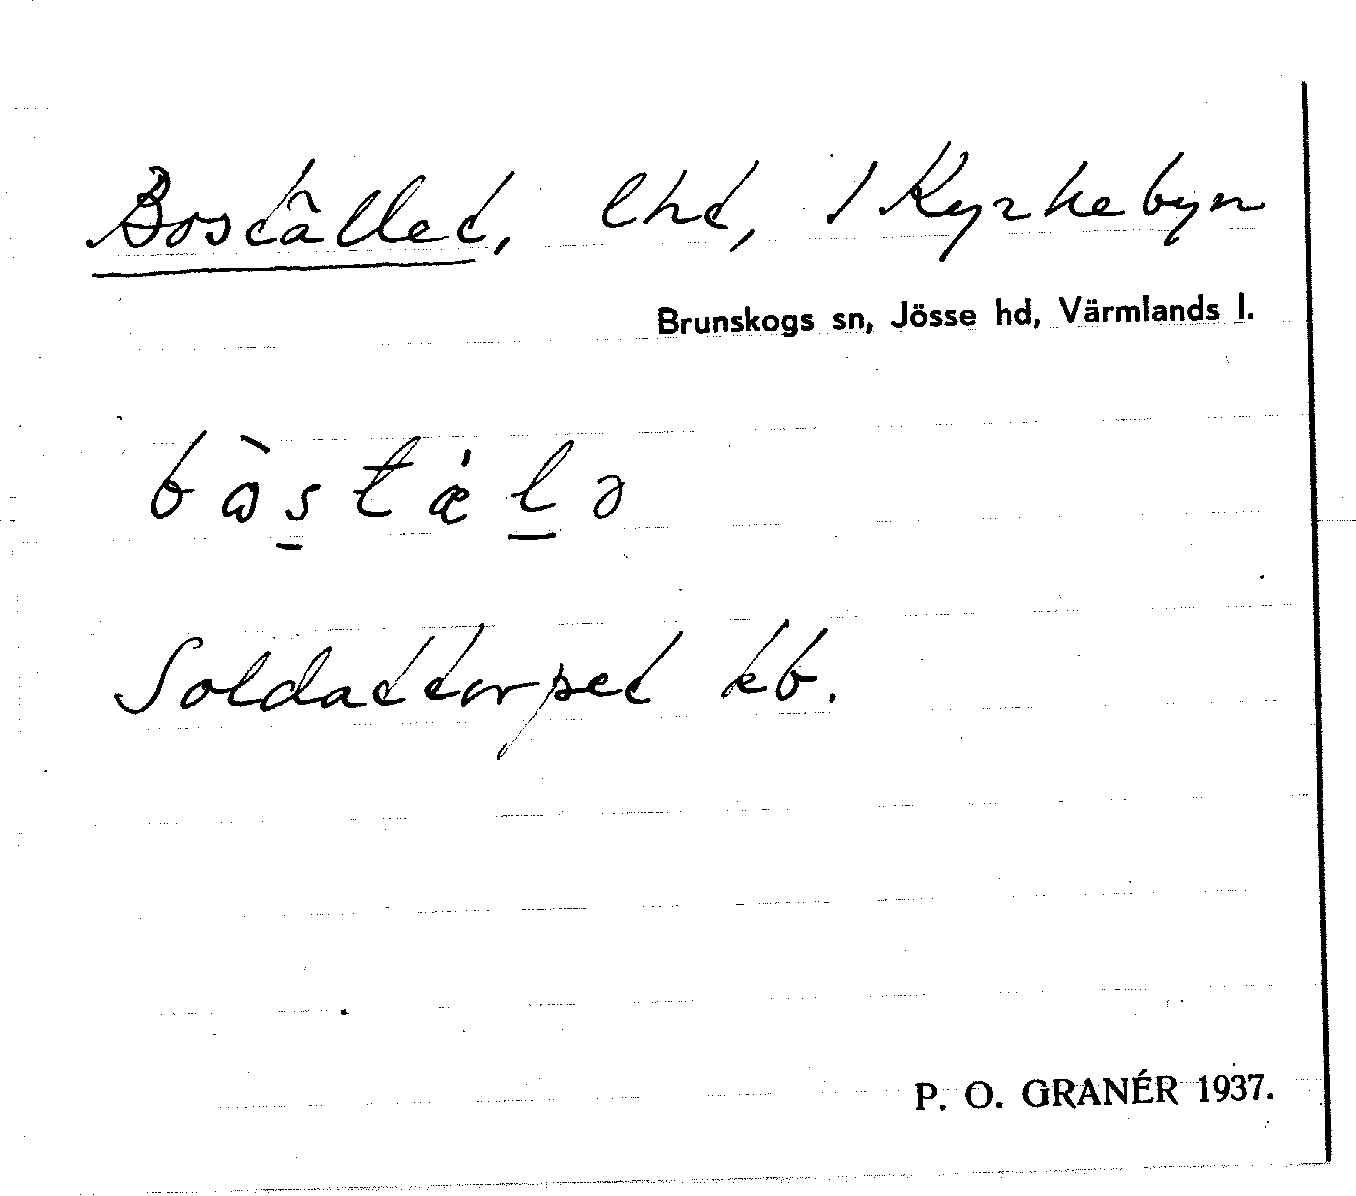 Boställed, lht, 1 Kyrkebyn
Brunskogs sn, Jösse hd, Värmlands l.
Soldattorpet kb.
P. O. GRANÉR 1937.